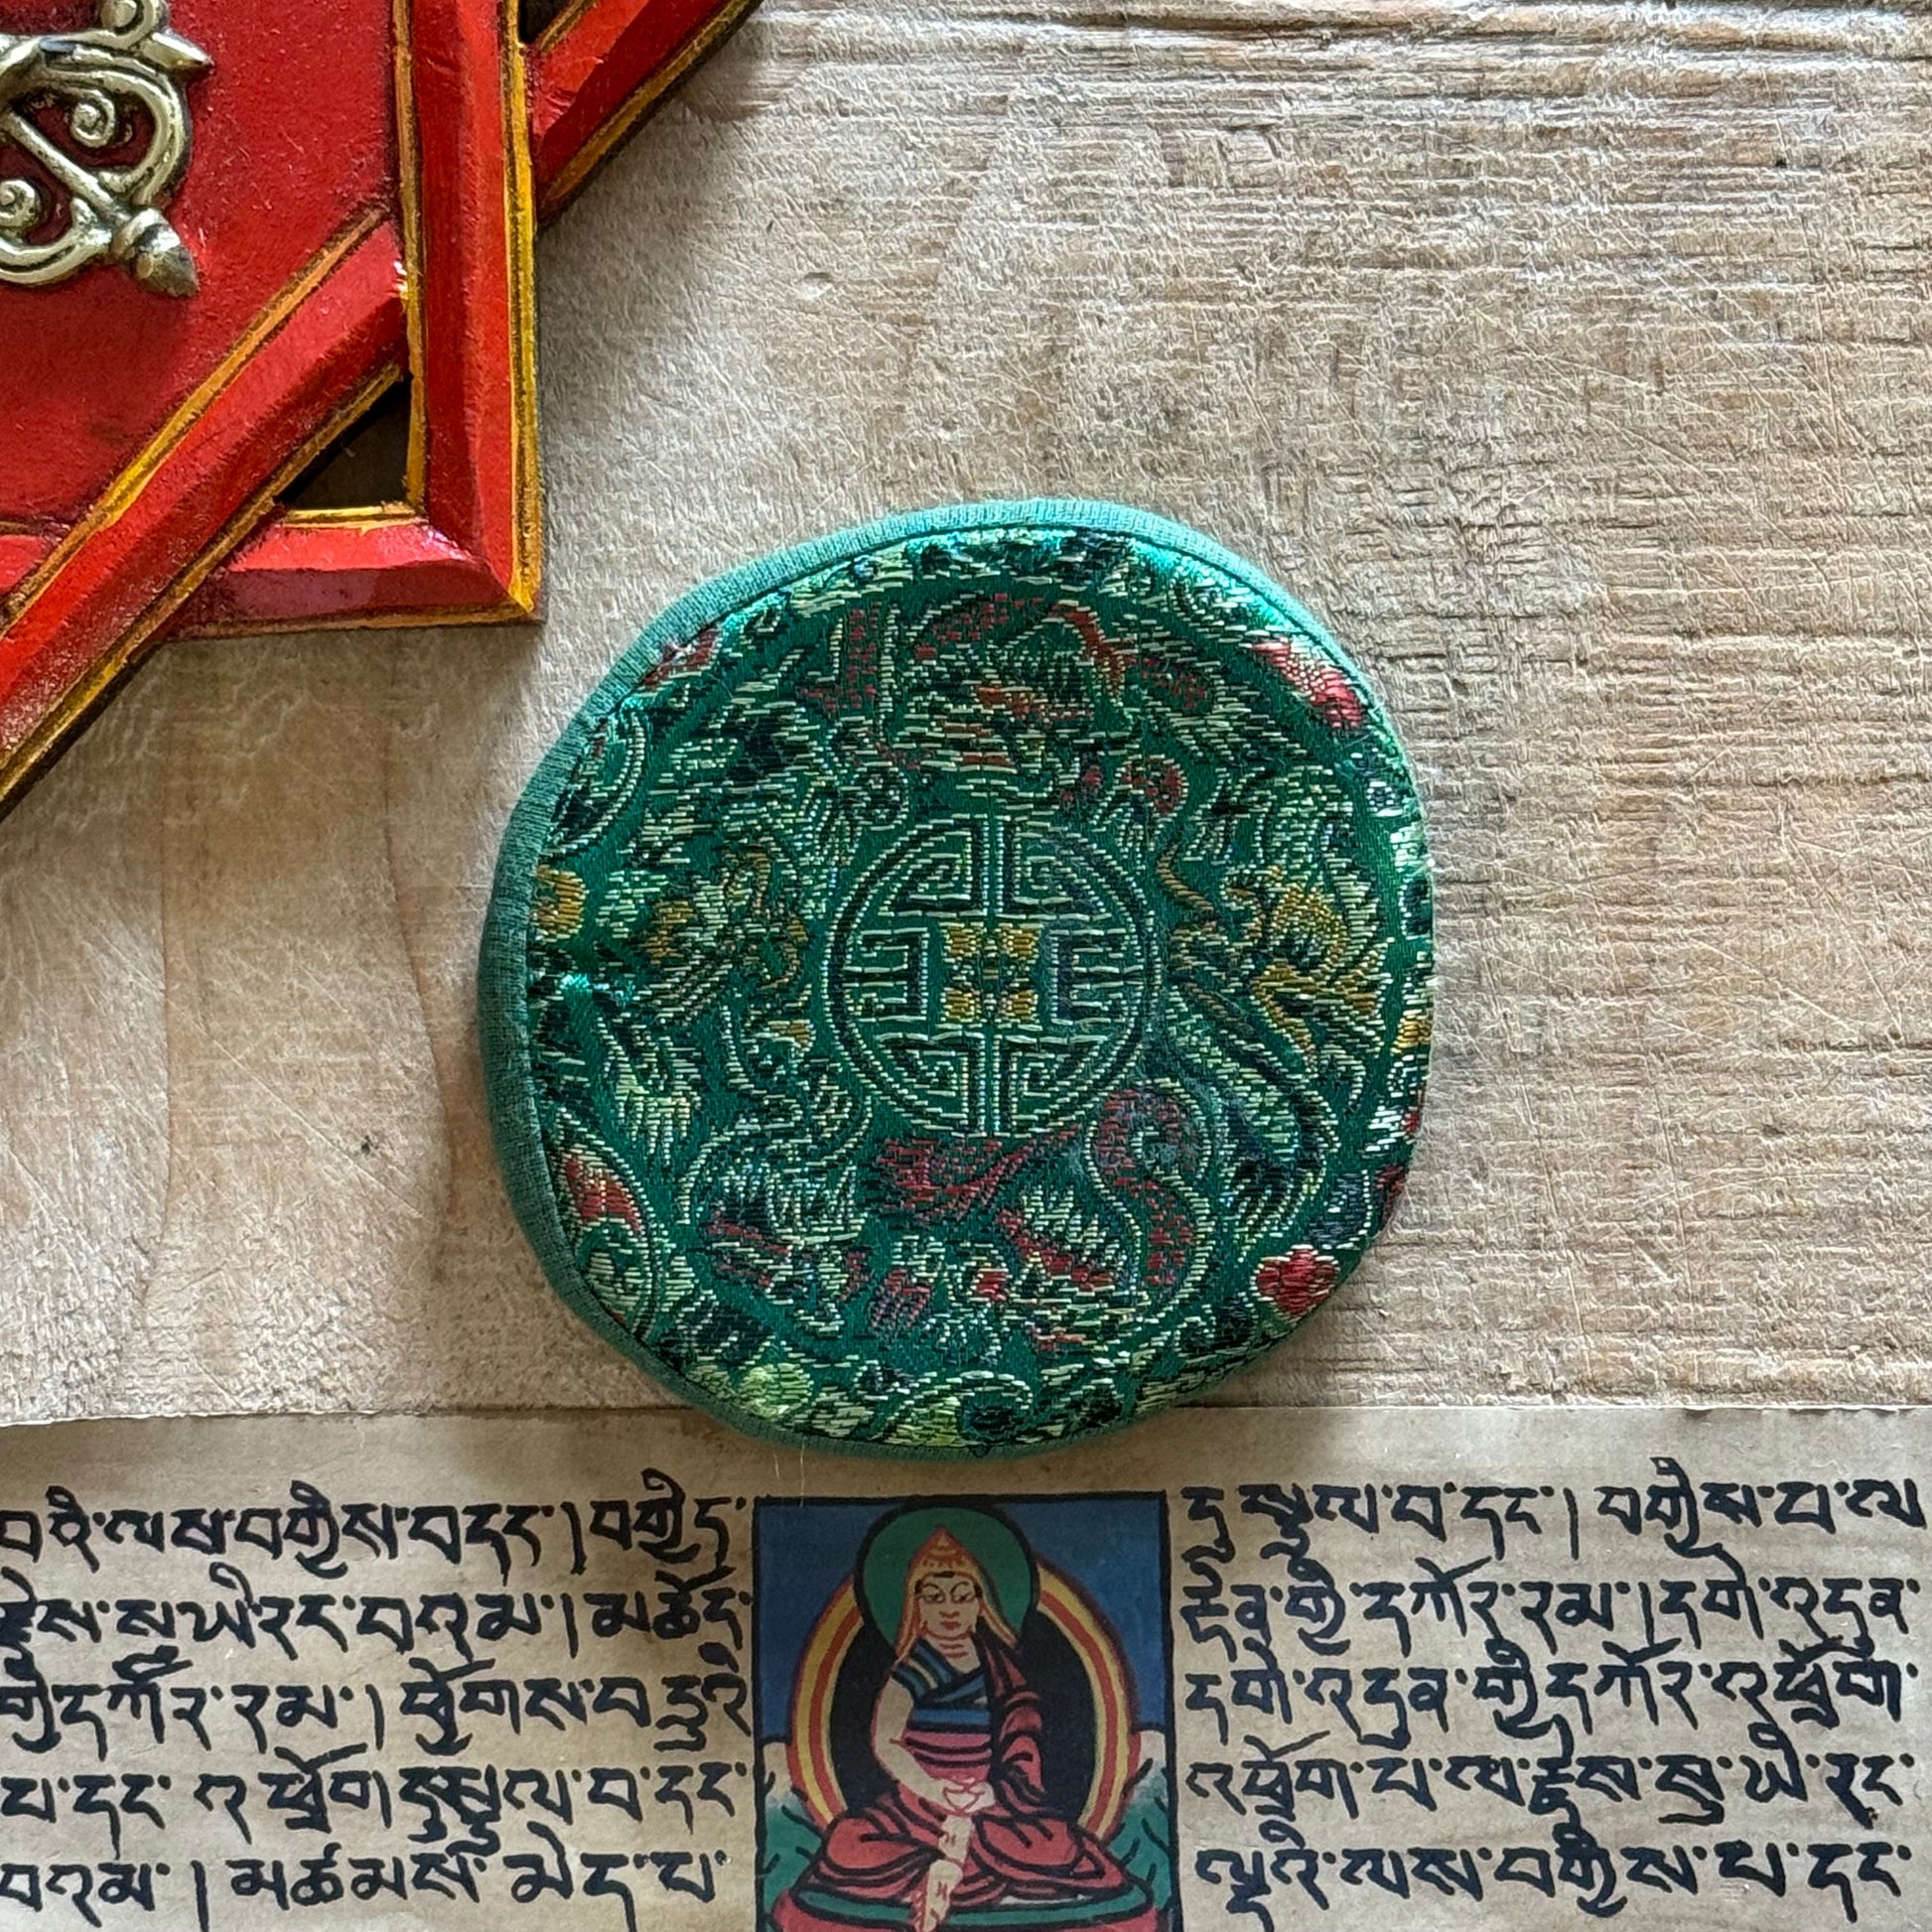 བའི་ལས་བགྱིས་བདང་། བགྱིད་ དུ་སྩལ་བ་དང་། བགྱིས་པ་ལ
རྗེས་སུ་ཡི་རང་བའམ། མཆོད་ རྟེན་གྱི་དཀོར་རམ། དགེ་འདུན་
གྱི་དཀོར་རམ། ཕྱོགས་བཅུའི་ དགེ་འདུན་གྱི་དཀོར་འཕྲོག་
པ་དང་ འཕྲོག་ཏུ་སྩལ་བ་དང་ འཕྲོག་པ་ལ་རྗེས་སུ་ཡི་རང་
བའམ། མཚམས་མེད་པ་ ལྔའི་ལས་བགྱིས་པ་དང་